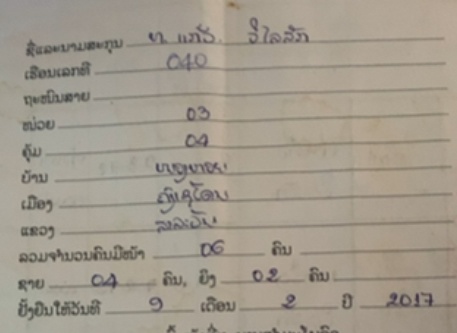 ຊື່ແລະນາມສະກຸນ ທ. ແກ້ວ ວິໄລສັກ
ເຮືອນເລກທີ 040
ຖະໜົນສາຍ
ໜ່ວຍ 03
ຄຸ້ມ 04
ບ້ານ
ເມືອງ
ແຂວງ ສາລະວັນ
ລວມຈຳນວນຄົນມີໜ້າ 06 ຄົນ
ຊາຍ 04 ຄົນ, ຍິງ 02 ຄົນ
ຢັ້ງຢືນໃຫ້ວັນທີ 9 ເດືອນ 2 ປີ 2017